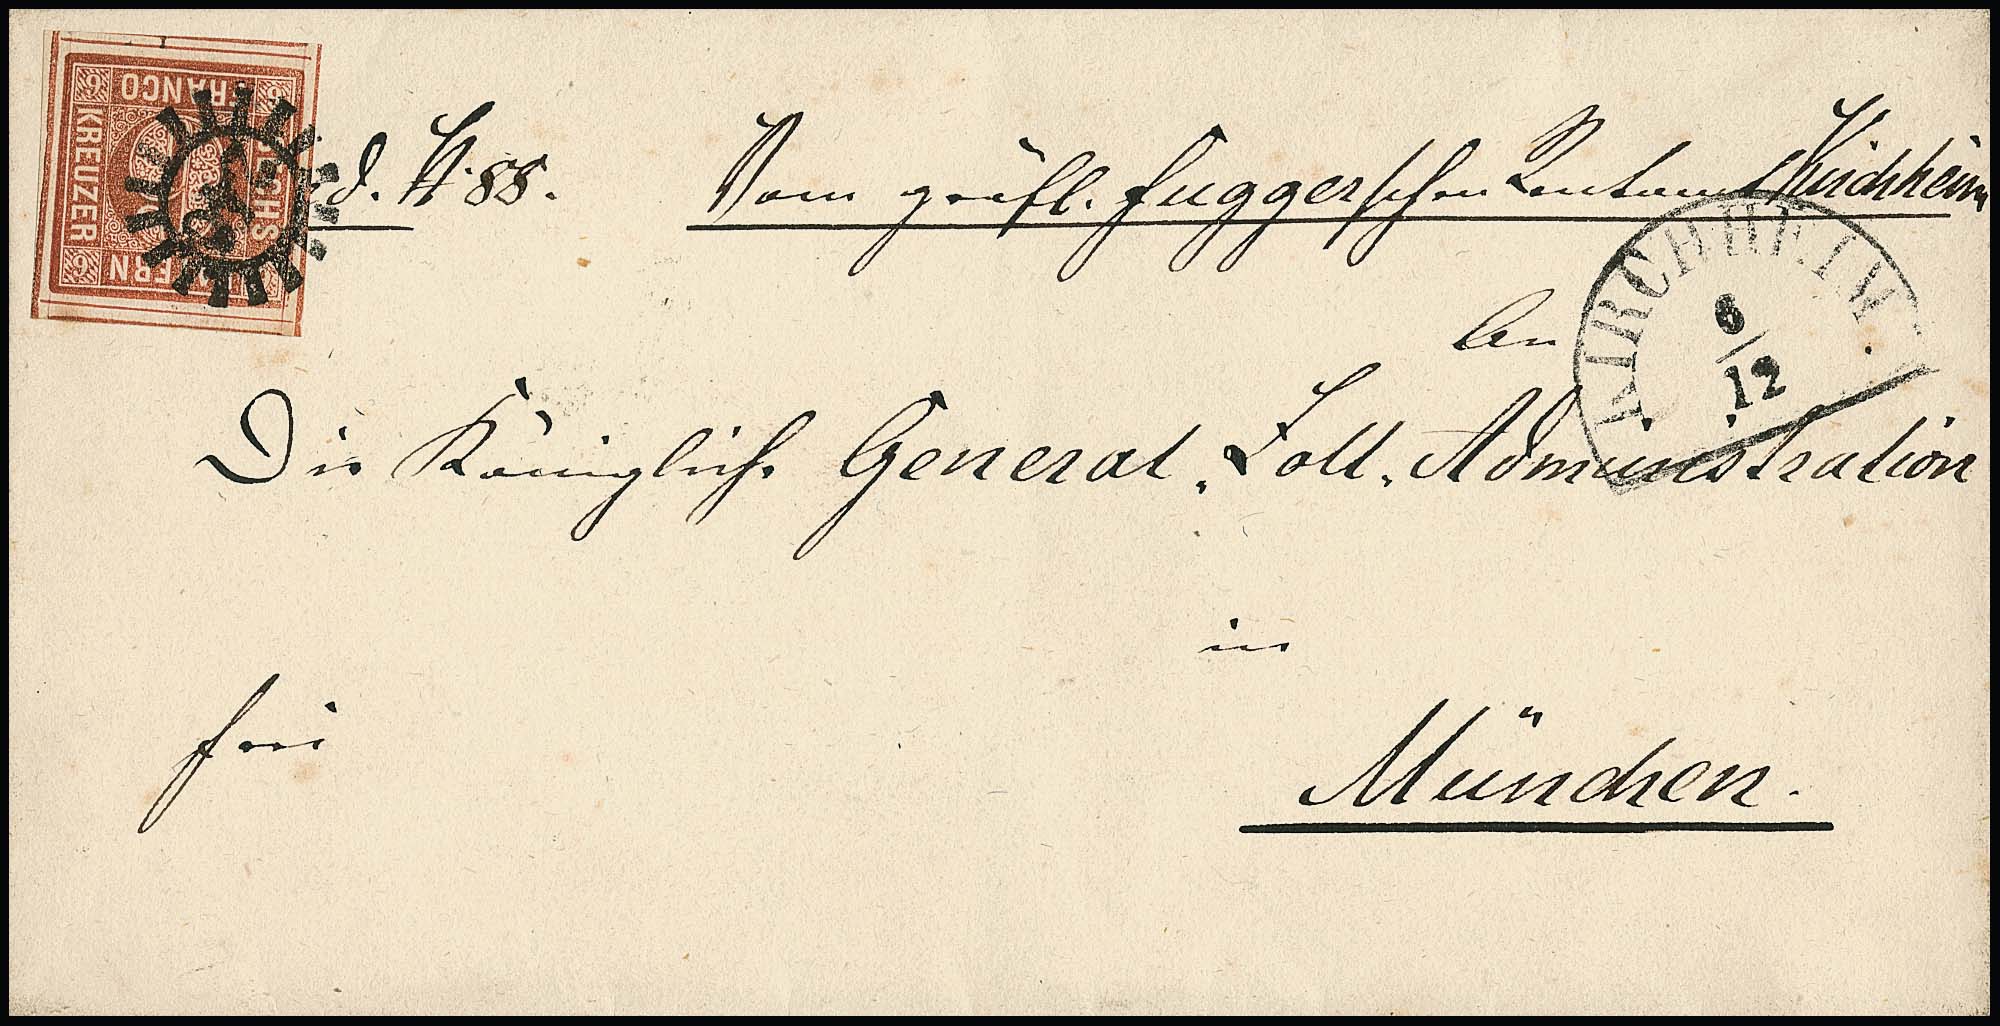 FRANCO
SECHS
KREUZER
BAYERN
6 6 6 6
d. N. 88. Vom gräfl. Fugger'schen Rentamt Kirchheim
KIRCHHEIM
6/12
An
Die Königliche General-Zoll-Administration
in
frei
München.